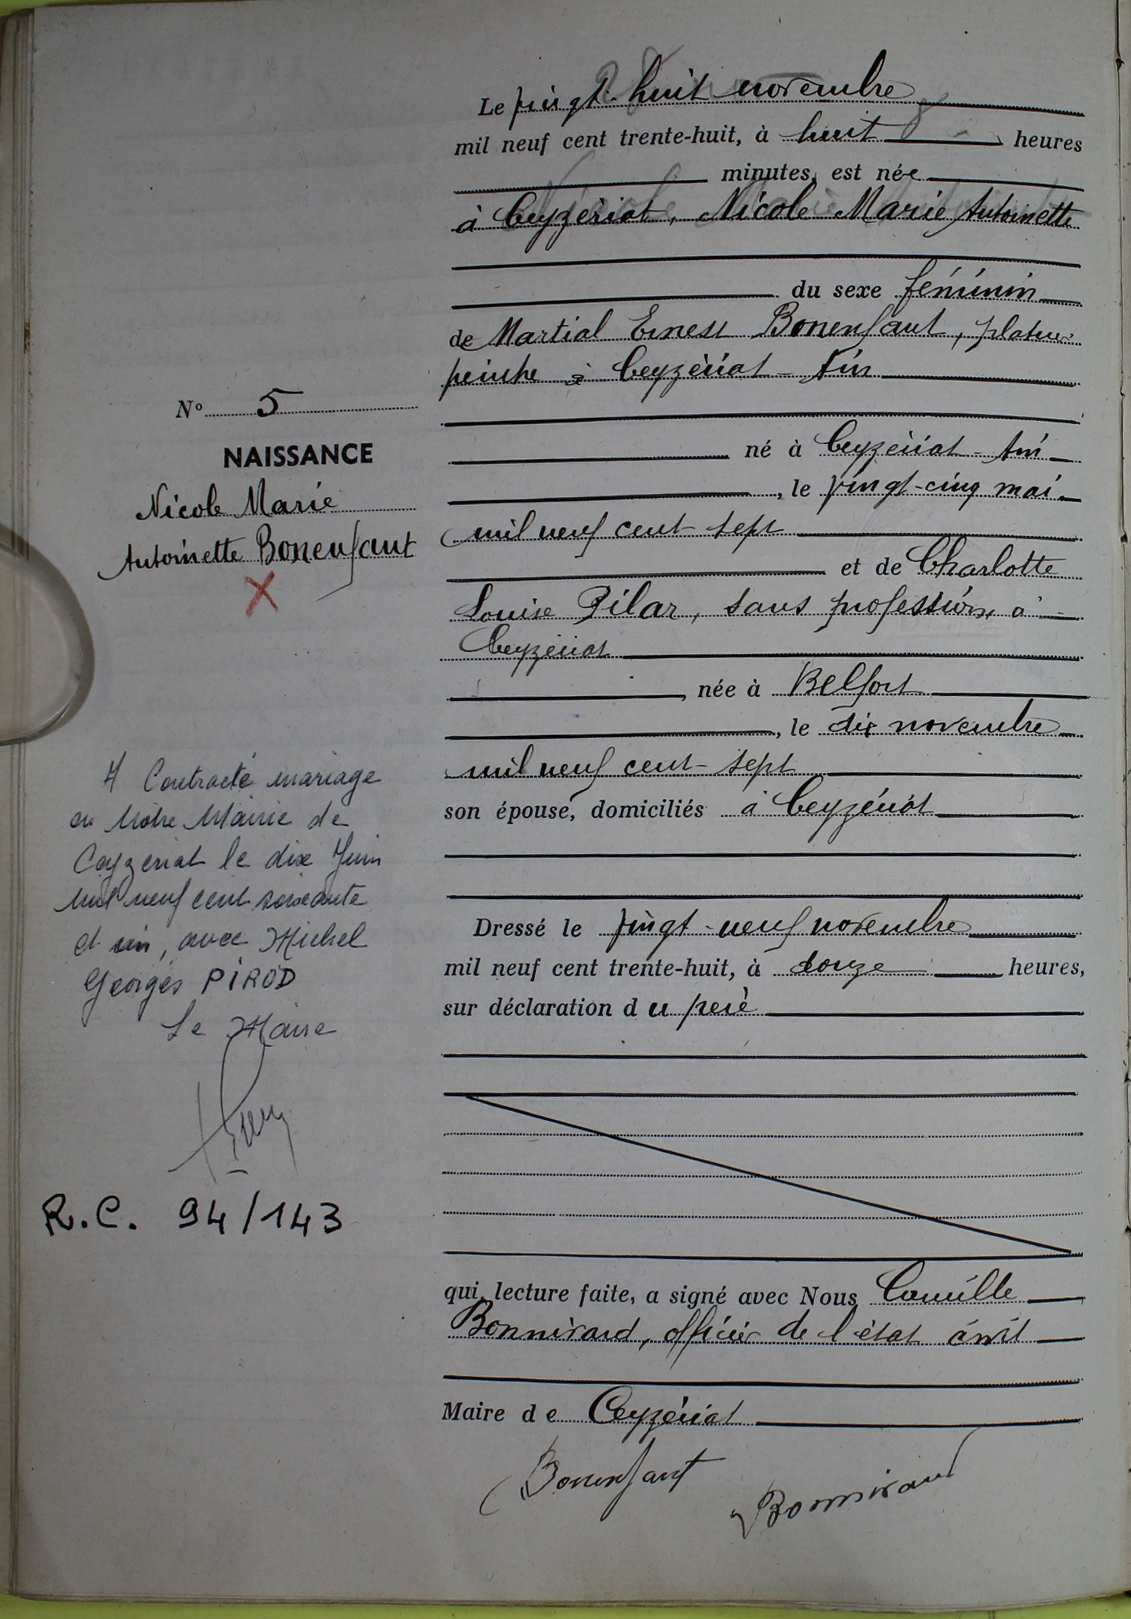 Le vingt-huit novembre
mil neuf cent trente-huit, à huit heures
minutes, est née
à Ceyzériat, Nicole Marie Antoinette
du sexe féminin
de Martial Ernest Bonenfant, platrier
peintre à Ceyzériat - Ain
né à Ceyzériat - Ain
, le vingt-cinq mai
mil neuf cent sept
et de Charlotte
Louise Pilar, sans profession, à
Ceyzériat
née à Belfort
, le dix novembre
mil neuf cent sept
son épouse, domiciliés à Ceyzériat
Dressé le vingt-neuf novembre
mil neuf cent trente-huit, à douze heures,
sur déclaration du père
qui, lecture faite, a signé avec Nous Camille
Bonnivard, officier de l'état civil
Maire de Ceyzériat
Bonenfant
Bonnivard
No 5
NAISSANCE
Nicole Marie
Antoinette Bonenfant
X
Contracté mariage
en Notre Mairie de
Ceyzériat le dix Juin
mil neuf cent soixante
et un, avec Michel
Georges PIROD
Le Maire
R.C. 94/143